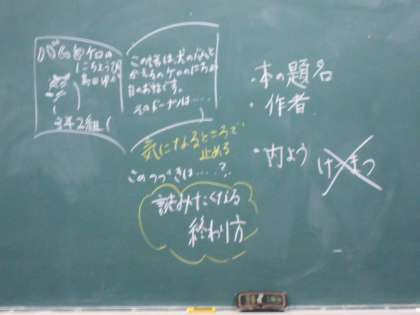 バムとケロの
にちようび
3年2組
この本は、犬のバムと
かえるのケロのにちよう
日のお話です。
気になるところで
止める
このつづきは……?
読みたくなる
終わり方
・本の題名
・作者
・内よう
けつまつ